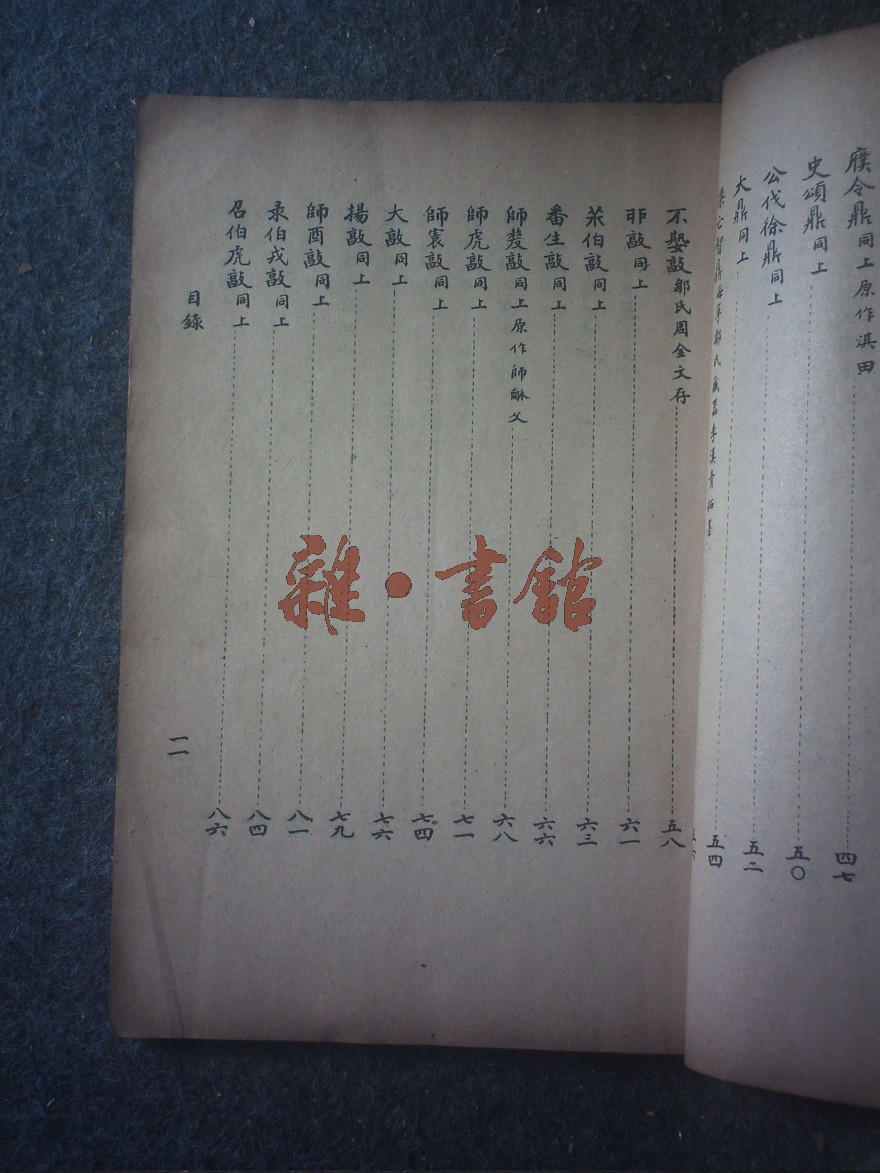 廙令鼎同上原作淇田……四七
史頌鼎同上……五〇
公伐徐鼎同上……五二
大鼎同上……五四
不𡢁敦鄒氏周金文存……五八
敦同上……六一
伯敦同上……六三
番生敦同上……六六
師𠭰敦同上原作師龢父……六八
師虎敦同上……七一
師寰敦同上……七四
大敦同上……七六
揚敦同上……七九
師酉敦同上……八一
彔伯戎敦同上……八四
召伯虎敦同上……八六
目錄
二
雜·書館